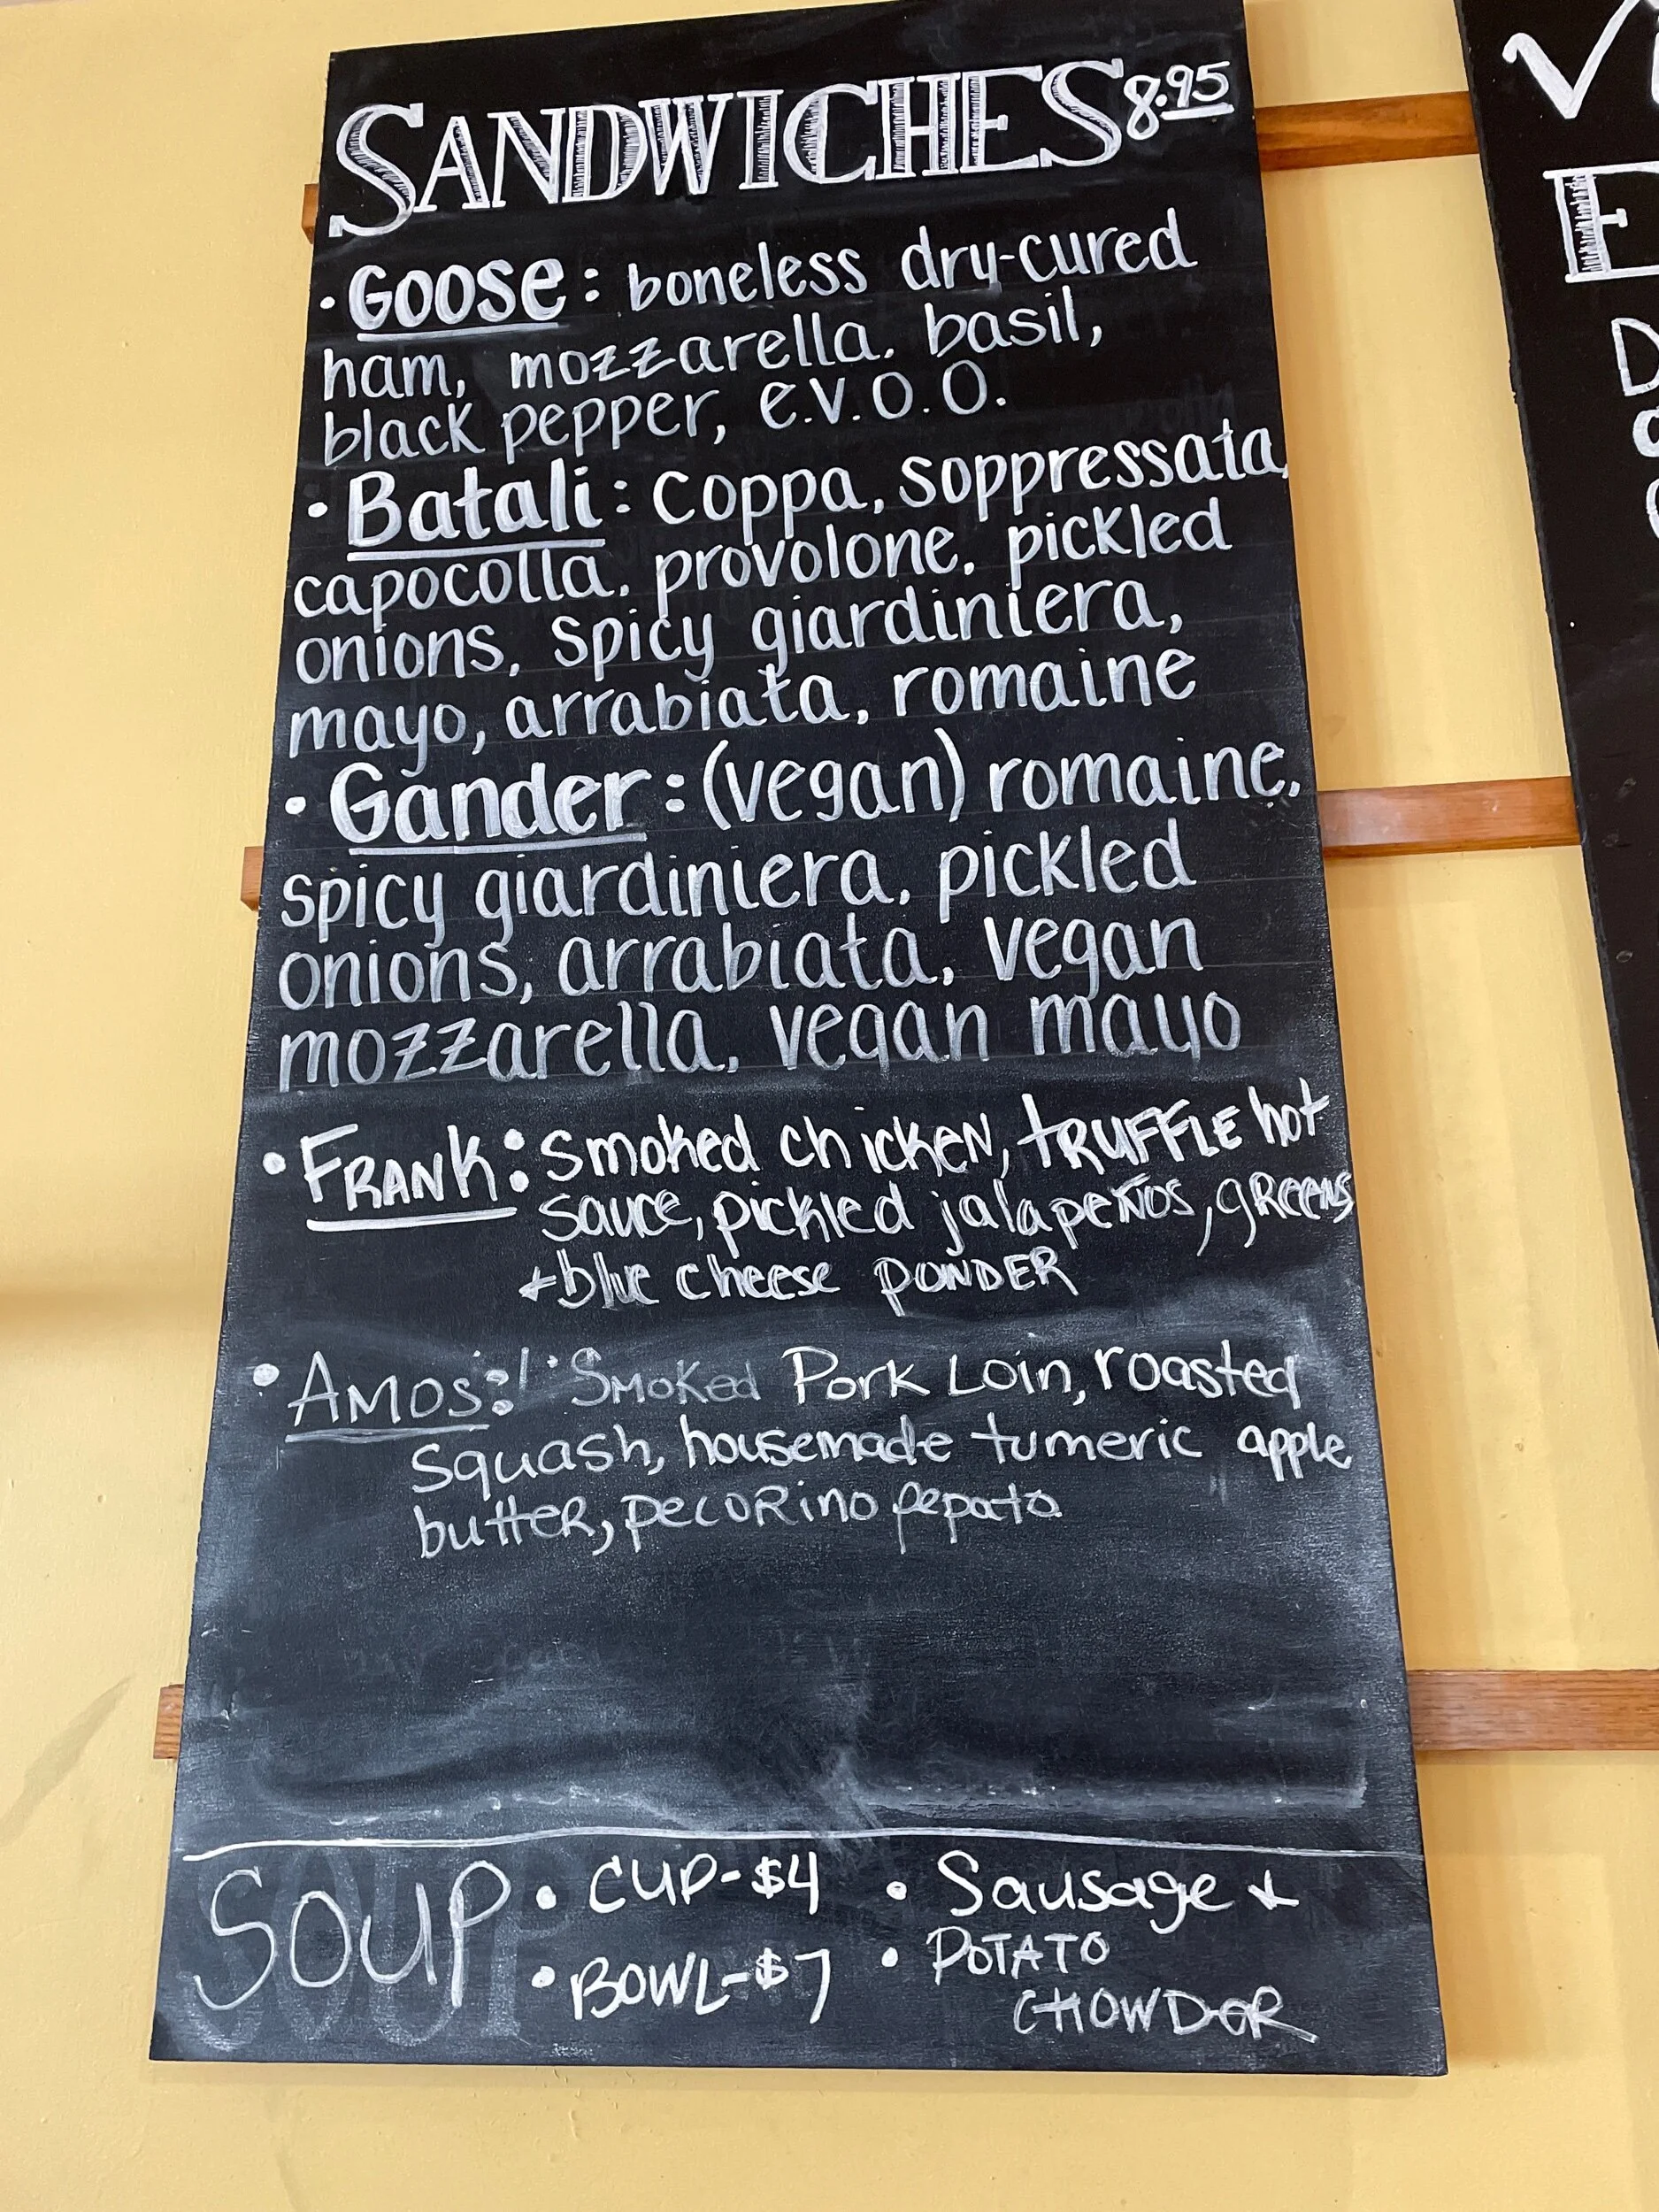 SANDWICHES 8.95
• Goose: boneless dry-cured
ham, mozzarella, basil,
black pepper, e.v.o.o.
• Batali: coppa, soppressata,
capocolla, provolone, pickled
onions, spicy giardiniera,
mayo, arrabiata, romaine
• Gander: (vegan) romaine,
spicy giardiniera, pickled
onions, arrabiata, vegan
mozzarella, vegan mayo
• FRANK: Smoked chicken, tRUFFLE hot
sauce, pickled jalapeños, gReens
+ blue cheese PONDER
• AMOS: Smoked Pork Loin, roasted
squash, housemade tumeric apple
butteR, pecoRino pepato
SOUP • CUP-$4 • Sausage +
• BOWL-$7 • POTATO
CHOWDER